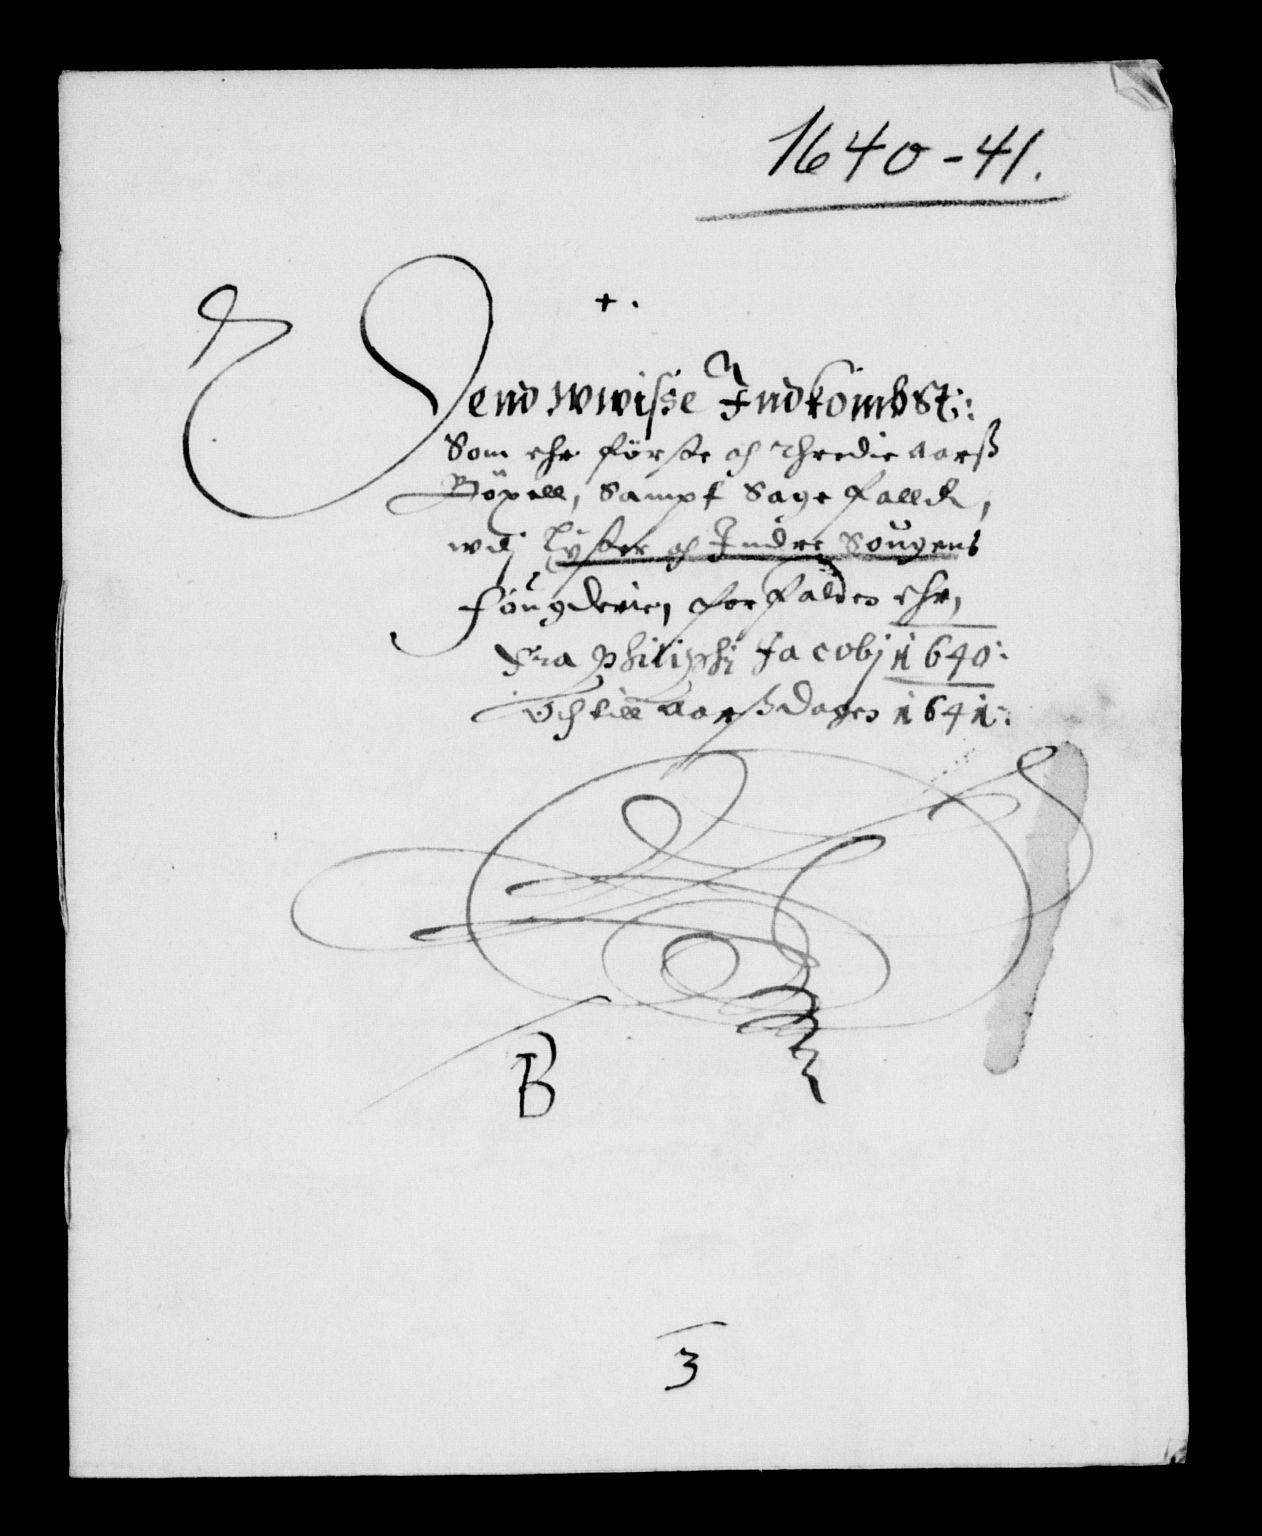 1640-41.
+.
Dend wwisse Indkombst:
Som ehr förste och Thredie aars
Böxell, Sampt Sage falld,
wdj Lyster och Indre Sougens
fougderie, forfalden ehr,
Fra Philiphi Jacobj 1640:
Och till Aarsdagen 1641:
B
3